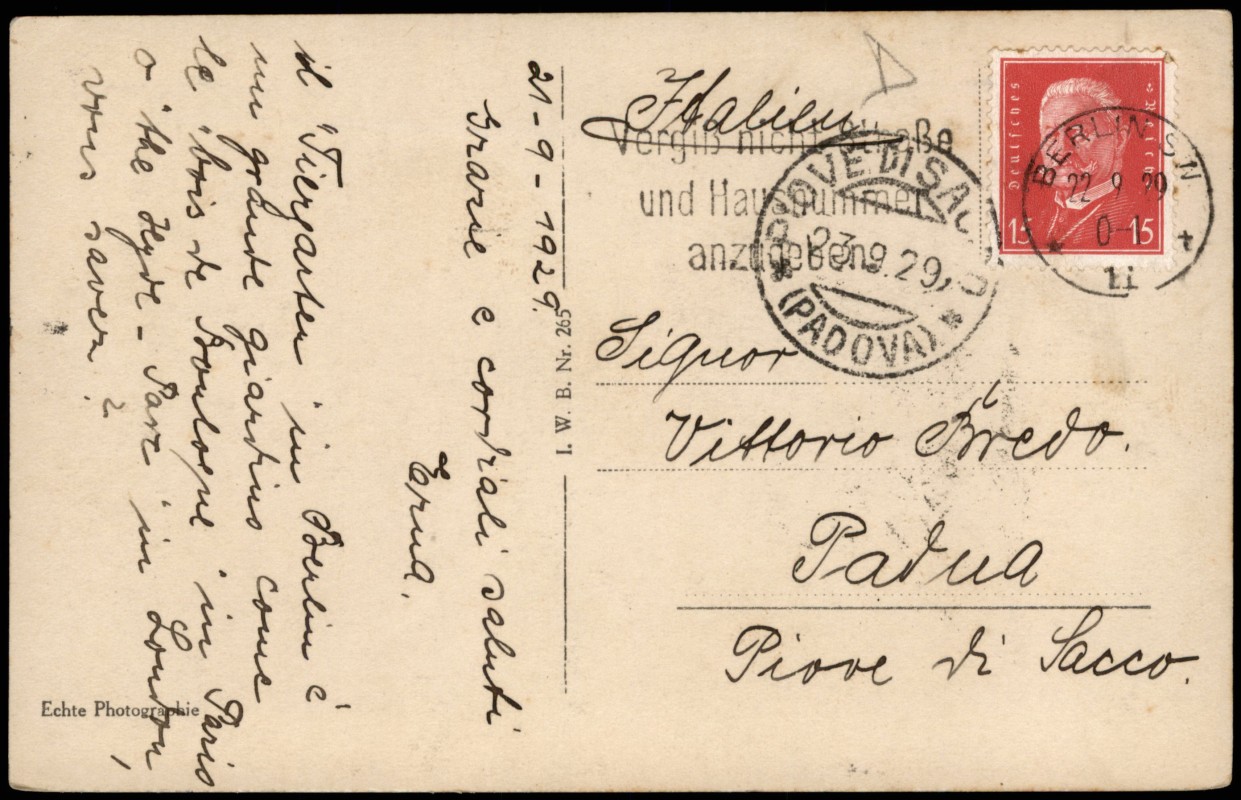 21-9-1929.
Grazie e cordiali saluti
Erna.
il Tiergarten in Berlin è
un grande giardino come
le bois de Boulogne in Paris
o the Hyde-Parc in London,
vous savez?
Echte Photographie
I. W. B. Nr. 265
Italien
Vergiß nicht Straße
und Hausnummer
anzugeben
PIOVE DI SACCO
23.9.29
(PADOVA)
Deutsches Reich
15 15
BERLIN SW
22.9.29
0-1
11
Signor
Vittorio Bredo.
Padua
Piove di Sacco.